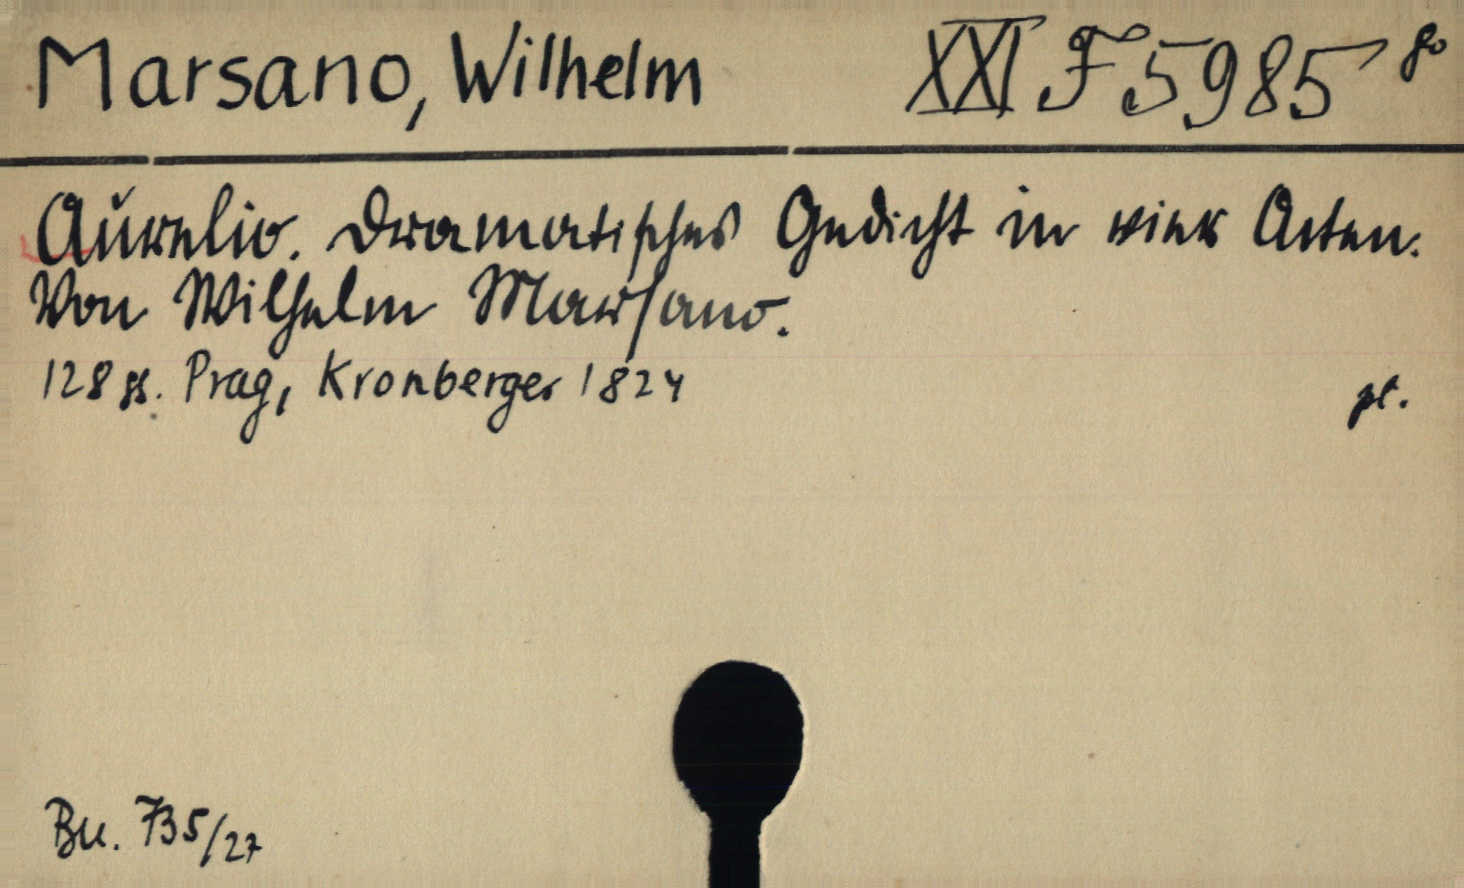 Marsano, Wilhelm XXI F 5985 8°
Aurelio. Dramatisches Gedicht in vier Acten.
Von Wilhelm Marsano.
128 SS. Prag, Kronberger 1824
pl.
Bu. 735/27